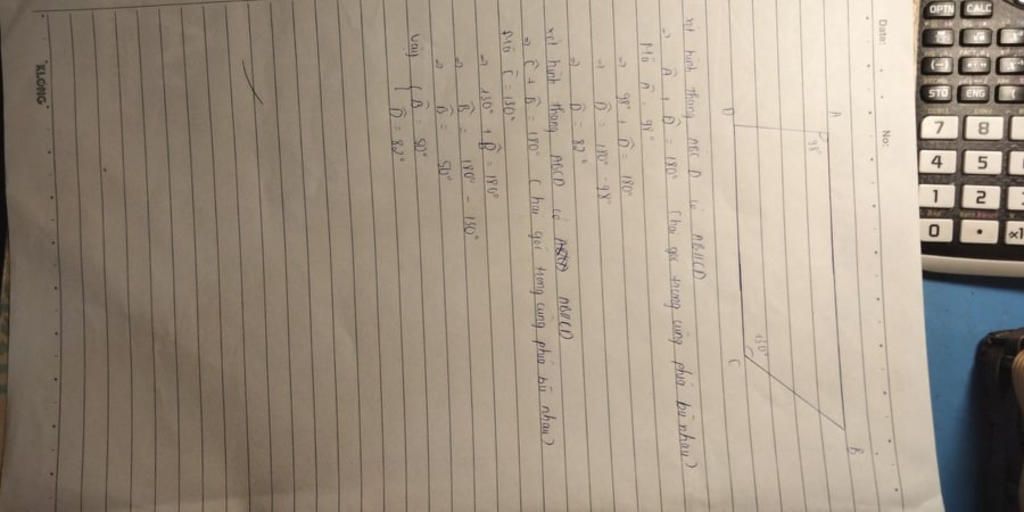 Date: No:
A B
98°
130°
D C
xét hình thang ABCD có AB//CD
=> Â + D̂ = 180° (hai góc trong cùng phía bù nhau)
Mà Â = 98°
=> 98° + D̂ = 180°
=> D̂ = 180° - 98°
=> D̂ = 82°
xét hình thang ABCD có AB//CD
=> Ĉ + B̂ = 180° (hai góc trong cùng phía bù nhau)
Mà Ĉ = 130°
=> 130° + B̂ = 180°
=> B̂ = 180° - 130°
=> B̂ = 50°
Vậy { B̂ = 50°
D̂ = 82°
KLONG
OPTN CALC
(-)
STO ENG (
7 8
4 5
1 2
0 • ×1